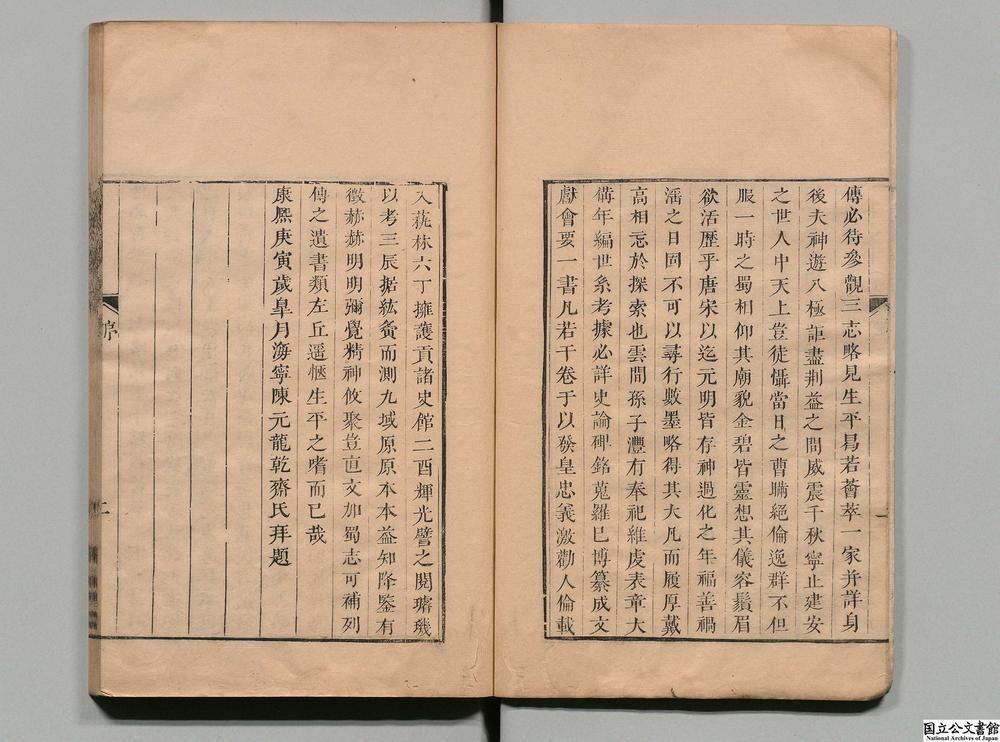 傳必待參觀三志略見生平曷若薈萃一家并詳身
後夫神遊八極詎盡荆益之間威震千秋寧止建安
之世人中天上豈徒懾當日之曹瞞絕倫逸群不但
服一時之蜀相仰其廟貌金碧皆靈想其儀容鬚眉
欲活歷乎唐宋以迄元明皆存神過化之年福善禍
滛之日固不可以尋行數墨略得其大凡而履厚戴
高相忘於探索也雲間孫子灃有奉祀維虔表章大
備年編世系考據必詳史論碑銘蒐羅巳博纂成文
獻會要一書凡若干卷于以發皇忠義激勸人倫載
入蓺林六丁擁護貢諸史館二酉輝光譬之閱璿璣
以考三辰据紘綖而測九域原原本本益知降鑒有
徵赫赫明明彌覺精神攸聚豈亶文加蜀志可補列
傳之遺書類左丘遥愜生平之嗜而已哉
康熙庚寅歲臯月海寧陳元龍乾齋氏拜題
序
二
国立公文書館
National Archives of Japan